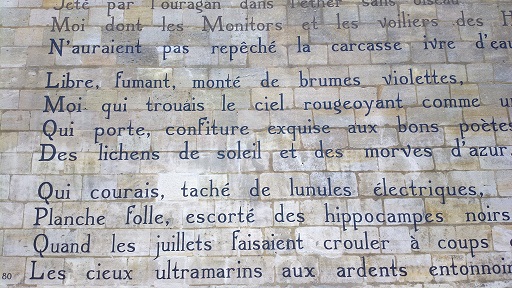 Jeté par l'ouragan dans l'éther sans oiseau
Moi dont les Monitors et les voiliers des H
N'auraient pas repêché la carcasse ivre d'eau
Libre, fumant, monté de brumes violettes,
Moi qui trouais le ciel rougeoyant comme u
Qui porte, confiture exquise aux bons poètes
Des lichens de soleil et des morves d'azur,
Qui courais, taché de lunules électriques,
Planche folle, escorté des hippocampes noirs
Quand les juillets faisaient crouler à coups
80 Les cieux ultramarins aux ardents entonnoir